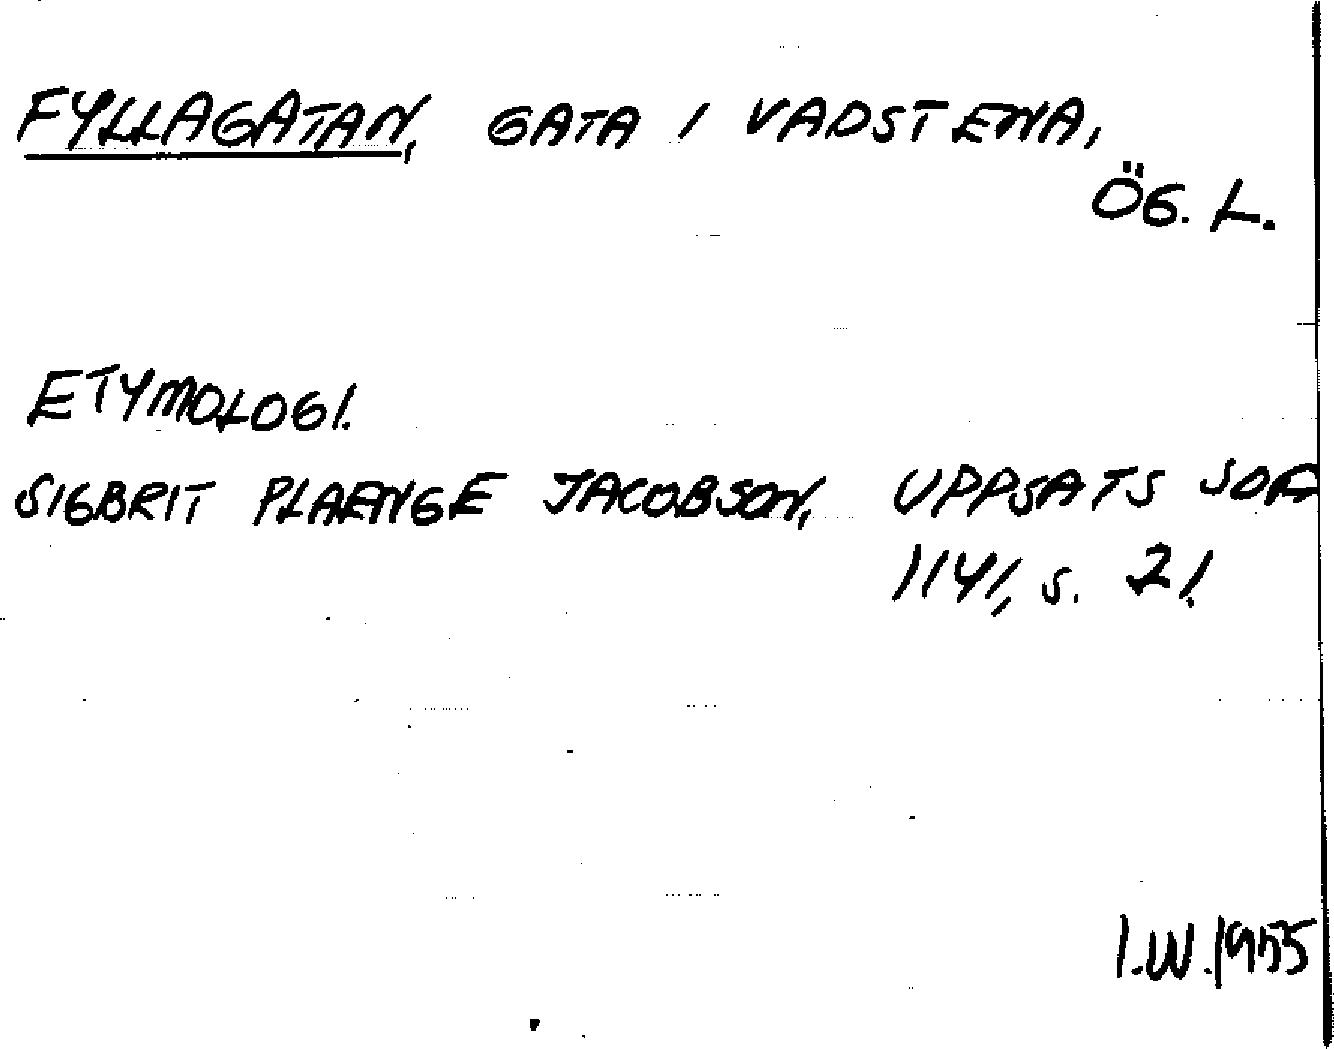 FYLLAGATAN, GATA I VADSTENA,
ÖG. L.
ETYMOLOGI.
SIGBRIT PLAENGE JACOBSON, UPPSATS SOFA
1141, S. 21.
I.W. 1975